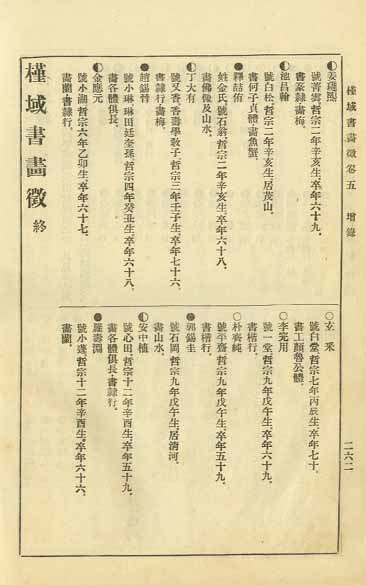 槿域書畫徵卷五 增錄 二六二
◐姜璡熙
號菁雲哲宗二年辛亥生、卒年六十九。
書篆隷畫梅。
◐池昌翰
號白松哲宗二年辛亥生、居茂山。
書何子貞體畫魚蟹。
●釋喆侑
姓金氏號石翁哲宗二年辛亥生、卒年六十八。
畫佛像及山水。
◐丁大有
號又香香壽學敎子哲宗三年壬子生、卒年七十六。
書隷行畫梅。
●趙錫晉
號小琳琳田廷奎孫哲宗四年癸丑生、卒年六十八。
畫各體俱長。
◐金應元
號小湖哲宗六年乙卯生、卒年六十七。
畫蘭書隷行。
○玄采
號白堂哲宗七年丙辰生、卒年七十。
書工顏魯公體。
○李完用
號一堂哲宗九年戊午生、卒年六十九。
書楷行。
○朴齊純
號平齋哲宗九年戊午生、卒年五十九。
書楷行。
●郭錫圭
號石岡哲宗九年戊午生、居清河。
畫山水。
◐安中植
號心田哲宗十二年辛酉生、卒年五十九。
畫各體俱長、書隷行。
●羅壽淵
號小蓬哲宗十二年辛酉生、卒年六十六。
畫蘭。
槿域書畫徵 終